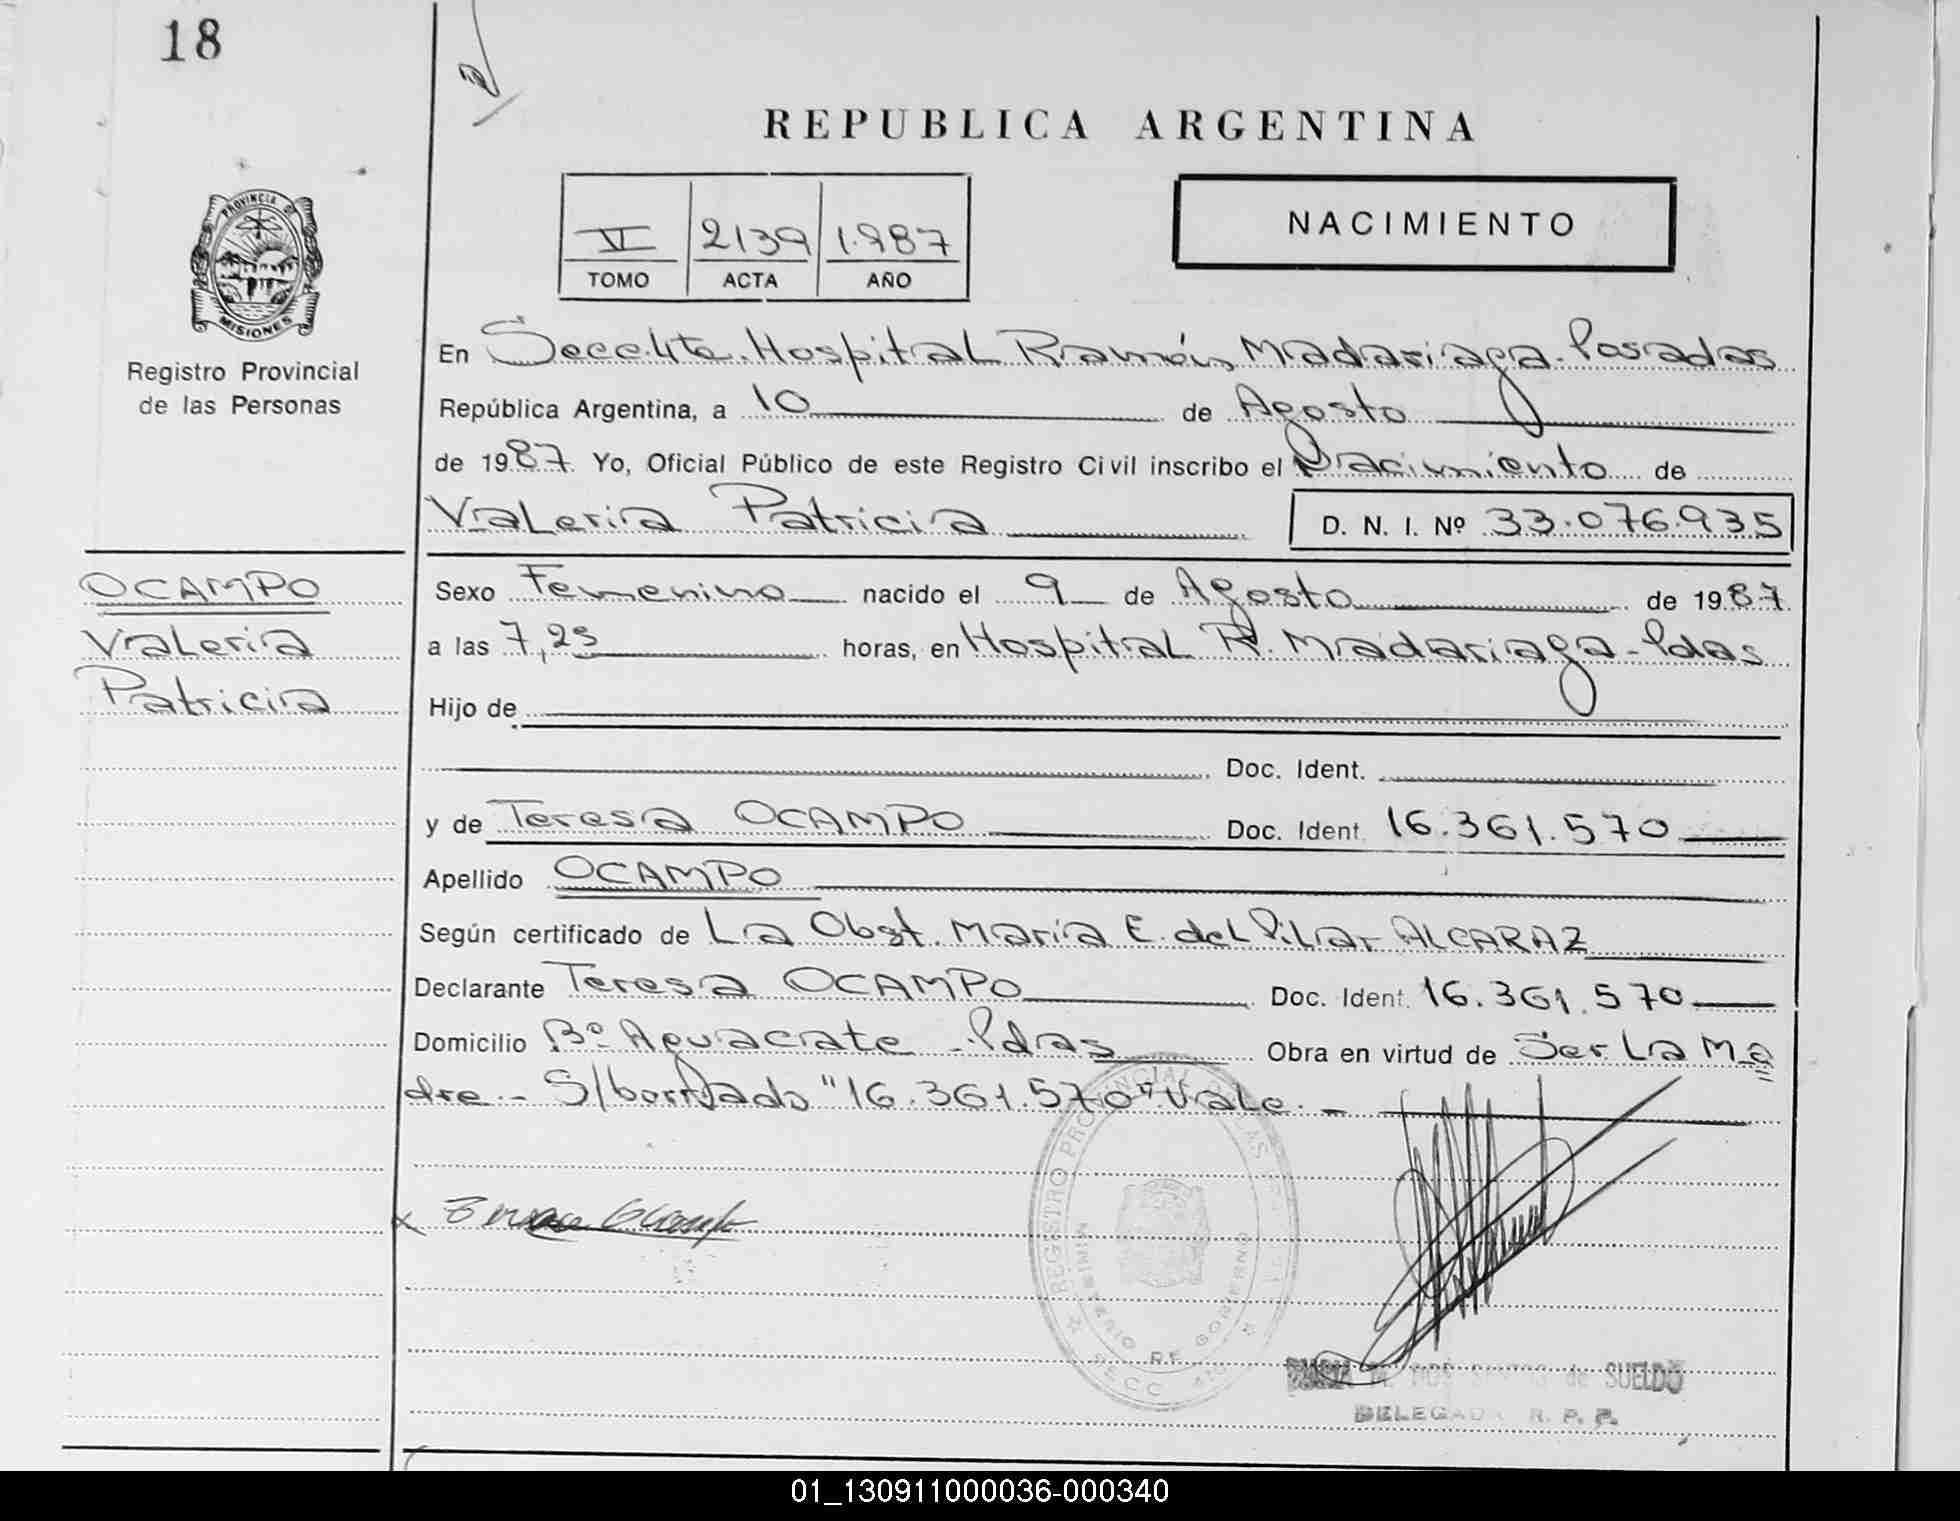 18
REPUBLICA ARGENTINA
VI 2139 1.987
TOMO ACTA AÑO
NACIMIENTO
PROVINCIA DE
MISIONES
Registro Provincial
de las Personas
En Hospital Ramón Madariaga - Posadas
República Argentina, a 10 de Agosto
de 1987. Yo, Oficial Público de este Registro Civil inscribo el Nacimiento de
Valeria Patricia D. N. I. Nº 33.076.935
OCAMPO
Valeria
Patricia
Sexo Femenino nacido el 9 de Agosto de 1987.
a las 7,25 horas, en Hospital R. Madariaga - Pdas
Hijo de
Doc. Ident.
y de Teresa OCAMPO Doc. Ident. 16.361.570
Apellido OCAMPO
Según certificado de La Obst. Maria E. del Pilar ALCARAZ
Declarante Teresa OCAMPO Doc. Ident. 16.361.570
Domicilio Bº Aguacate - Pdas Obra en virtud de Ser La Ma
dre.- S/borrado "16.361.570" Vale.-
REGISTRO PROVINCIAL DE LAS
MINISTERIO DE GOBIERNO
M. DOS SANTOS de SUELDO
DELEGADA R. P. P.
01_130911000036-000340